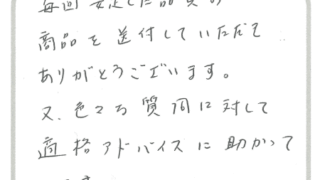 毎回安定した品質の
商品を送付していただて
ありがとうございます。
又、色々な質問に対して
適格アドバイスに助かって